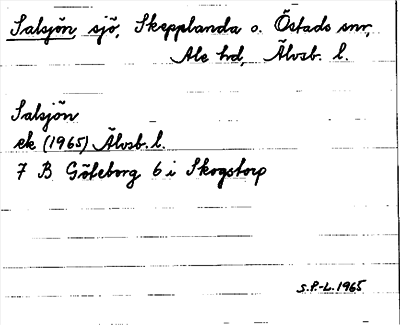 Salsjön, sjö, Skepplanda o. Östads snr,
Ale hd, Älvsb. l.
Salsjön
ek (1965) Älvsb. l.
7 B Göteborg 6 i Skogstorp
S.P-L. 1965